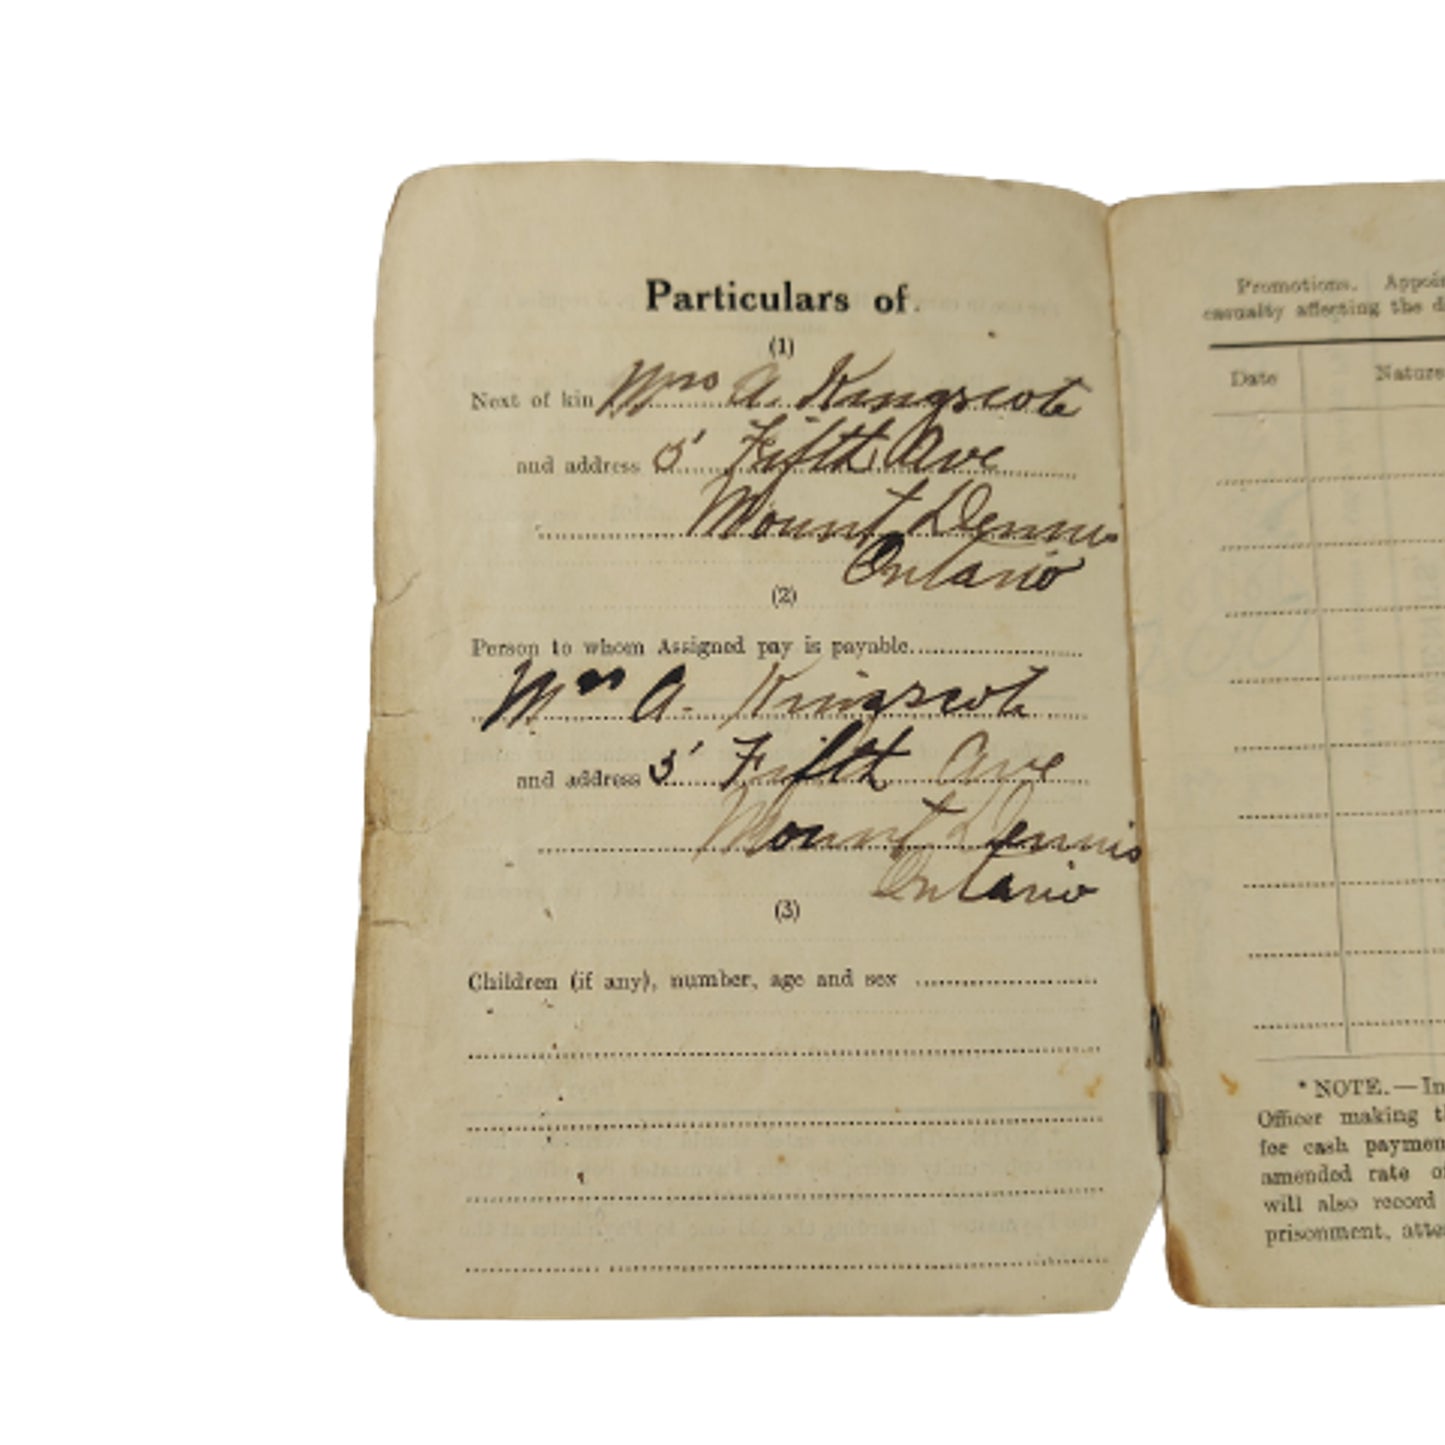 Particulars of
(1)
Next of kin Mrs A. Kingscote
and address 5 Fifth Ave
Mount Dennis
Ontario
(2)
Person to whom Assigned pay is payable
Mrs A. Kingscote
and address 5 Fifth Ave
Mount Dennis
Ontario
(3)
Children (if any), number, age and sex
Promotions. Appoin
casualty affecting the d
Date Nature
* NOTE.—In
Officer making th
for cash paymen
amended rate o
will also record
prisonment, atte